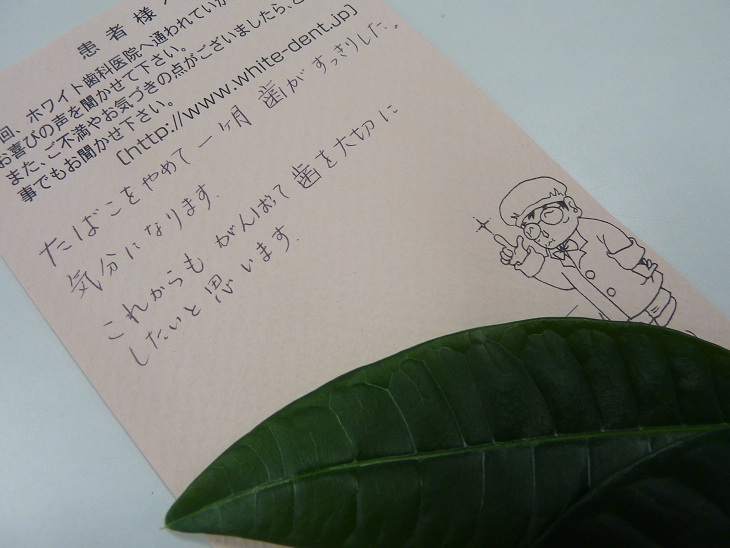 患者様
回、ホワイト歯科医院へ通われていか
お喜びの声を聞かせて下さい。
また、ご不満やお気づきの点がございましたら、ど
事でもお聞かせ下さい。
[http://www.white-dent.jp]
たばこをやめて一ヶ月 歯がすっきりした。
気分になります.
これからもがんばって歯を大切に
したいと思います.